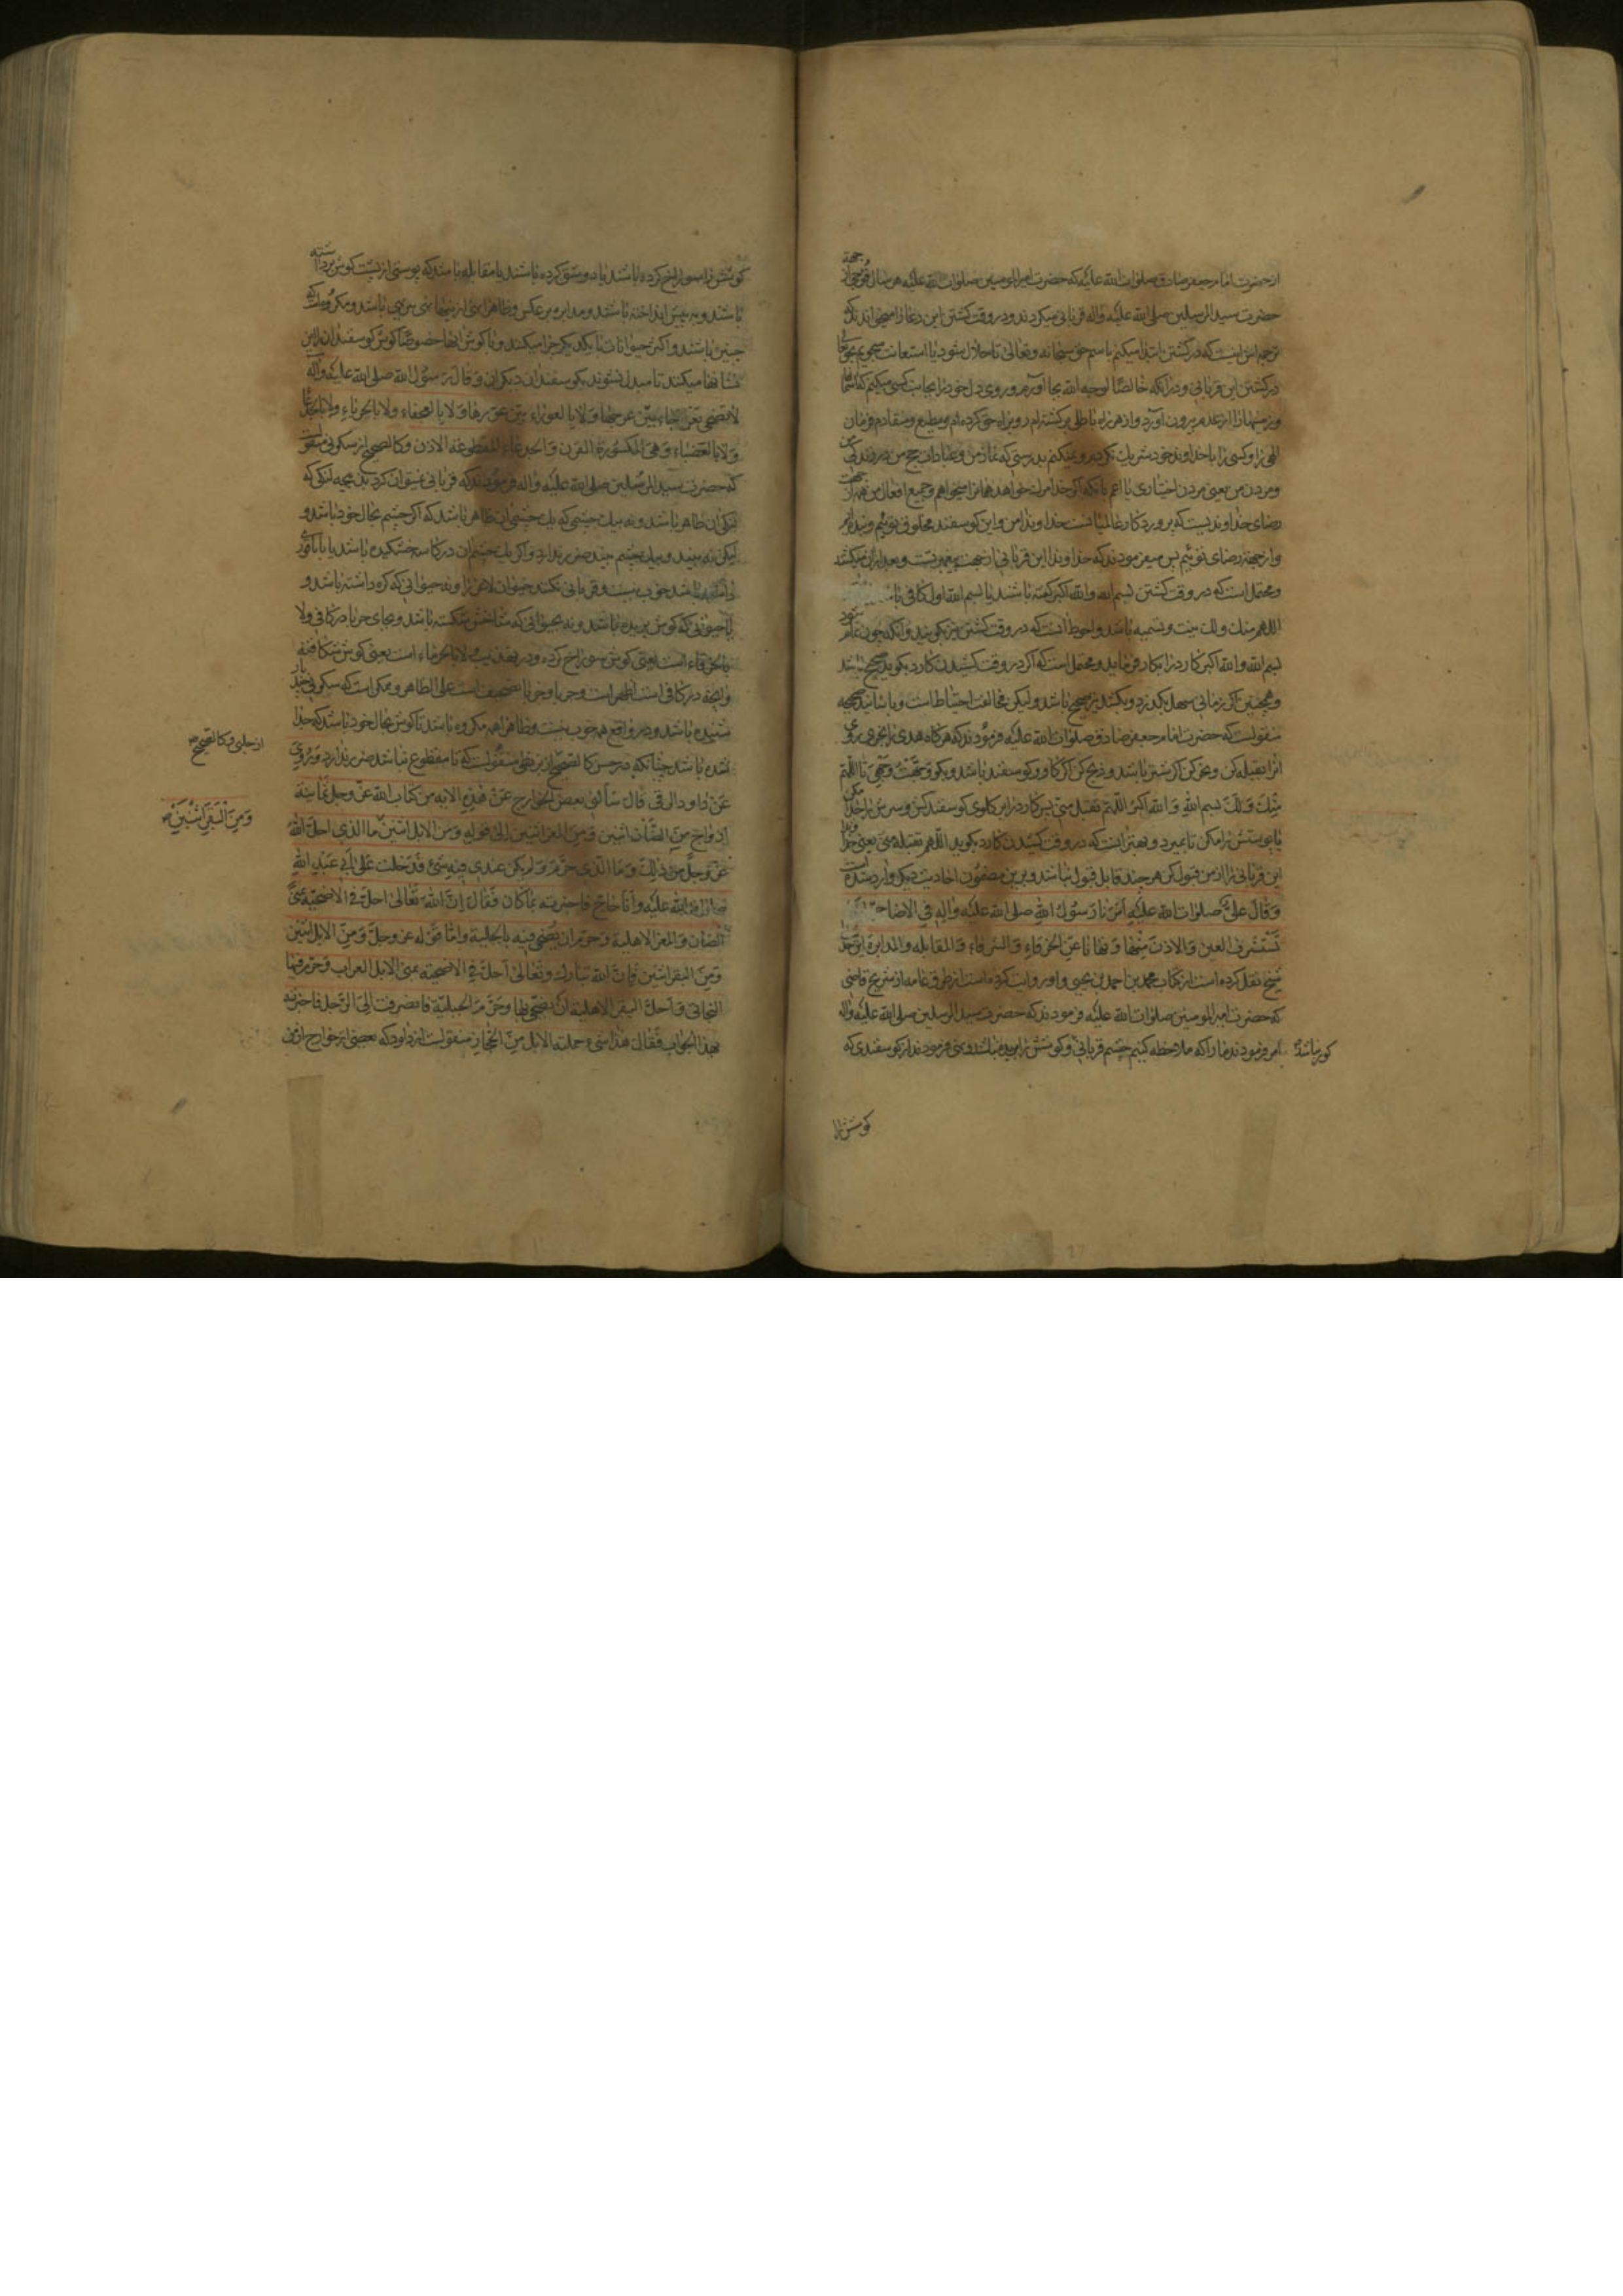 از حضرت امام جعفر صادق صلوات الله علیه که حضرت امیر المومنین صلوات الله علیه هر سال قوچی از جهة
حضرت سید المرسلین صلی الله علیه واله قربانی میکردند و در وقت کشتن این دعا را میخواندند که
ترجه‌اش اینست که در کشتن ابتدا میکنم باسم حق سبحانه وتعالی تا حلال شود یا استعانت میجویم بحق تعالی
در کشتن این قربانی و در آنکه خالصا لوجه الله بجا آورم و روی دل خود را بجانب کسی میکنم که آسمانها
وزمینها را از عدم بیرون آورد و از هر راه باطلی برکشته‌ام و رو براه حق کرده‌ام و مطیع و منقادم فرمان
الهی را و کسی را با خداوند خود شریک نکردم و نمیکنم بدرستی که نماز من و عبادات حج من و زندکی من
ومردن من یعنی مردن اختیاری یا اعم بانکه اکر خدا مرك خواهد همانرا میخواهم وجمیع افعال من همه از جهت
رضای خداوندیست که پروردکار عالمیانست خداوندا من و این کوسفند مخلوق توئیم
واز جهة رضای توئیم پس میفرمودند که خداوندا این قربانی از جهت پیغمبر تست و بعد از آن میکشتند
ومحتمل است که در وقت کشتن بسم الله والله اکبر کفته باشند یا بسم الله اول کافی
اللهم منك ولك نیت و تسمیه باشد و احوط آنست که در وقت کشتن نیز بکویند و آنکه چون تمام شود
بسم الله والله اکبر کارد را بکار فرماید و محتمل است که اکر در وقت کشیدن کارد بکوید صحیح باشد
وهمچنین اکر زمانی سهل بکذرد و بکشد نیز صحیح باشد ولیکن مخالفت احتیاط است و باسانید صحیحه
منقولست که حضرت امام جعفر صادق صلوات الله علیه فرمودند که هرکاه هدی را بخری روی
انرا بقبله کن و نحر کن اکر شتر باشد و ذبح کن اکر کاو و کوسفند باشد و بکو وجهت وجهی تا اللهم
منك ولك بسم الله والله اکبر اللهم تقبل منی پس کارد را بر کلوی کوسفند کش و سرش را جدا مکن
یا پوستش را مکن تا بمیرد و بهتر انست که در وقت کشیدن کارد بکوید اللهم تقبله منی یعنی خداوندا
این قربانی را از من قبول کن هر چند قابل قبول نباشد و برین مضمون احادیث دیکر وارد شده است
وقال علی صلوات الله علیه امرنا رسول الله صلی الله علیه واله فی الاضاحی
نستشرف العین والاذن منها و نهانا عن الخرقاء والشرقاء والمقابله والمدابرة
شیخ نقل کرده است از کتاب محمد بن احمد بن یحیی و او روایت کرده است از طرق عامه از شریح قاضی
که حضرت امیر المومنین صلوات الله علیه فرمودند که حضرت سید المرسلین صلی الله علیه واله
امر فرمودند ما را که ملاحظه کنیم چشم قربانی و کوشش را بریده نباشد و نهی فرمودند از کوسفندی که
کور نباشد
کوشش را
کوشش را سوراخ کرده باشند یا دو شق کرده باشند یا مقابله باشد که پوستی از پشت کوش برداشته
باشند و به پیش انداخته باشند و مدابره بر عکس وظاهرا نهی از اینها نهی تنزیهی باشد و مکروهست که
چنین باشند و اکثر حیوانات با یکدیکر چرا میکنند و با کوش انها خصوصا کوش کوسفندان را این
نشانها میکنند تا مبدل نشوند بکوسفندان دیکران وقال رسول الله صلی الله علیه واله
لا تضحی بعرجاء بین عرجها ولا بالعوراء بین عورها ولا بالعجفاء ولا بالجرباء ولا بالجدعاء
ولا بالعضباء وهی المکسورة القرن والجدعاء المقطوعة الاذن وکالصحیح از سکونی منقولست
که حضرت سید المرسلین صلی الله علیه واله فرمودند که قربانی نمیتوان کرد بکجه لنکی که
لنکی ان ظاهر باشد و نه بیك چشمی که یك چشمی ان ظاهر باشد که اکر چشم بحال خود باشد و
لیکن نه بیند و بیك چشم بیند ضرر ندارد و اکر یك چشم ان در کاسه خشکیده باشد
باشد خوب نیست و قربانی نکنند حیوان لاغر را و نه حیوانی که کره داشته باشد و
یا حیوانی که کوش بریده باشد و نه بحیوانی که شاخش شکسته باشد و بجای جربا در کافی ولا
بالخرقاء است یعنی کوش سوراخ کرده و در تهذیب ولا بالخرماء است یعنی کوش شکافته
وانچه در کافی است اظهر است وجربا وخرما تصحیف است علی الظاهر و ممکن است که سکونی چند بار
شنیده باشد و در واقع همه خوب نیست وظاهرا همه مکروه باشد تا کوش بحال خود باشد که جدا
نشده باشد چنانکه در حسن کالصحیح از بزنطی منقولست که تا مقطوع نباشد ضرر ندارد وروی
عن داود الرقی قال سألنی بعض الخوارج عن هذه الایه من کتاب الله عز وجل ثمانیة
ازواج من الضان اثنین ومن المعز اثنین الی قوله ومن الابل اثنین ما الذی احل الله
عز وجل من ذلك وما الذی حرم ولم یکن عندی فیه شئ فدخلت علی ابی عبد الله
صلوات الله علیه وانا حاج فاخبرته بما کان فقال ان الله تعالی احل فی الاضحیة بمنی
الضان والمعز الاهلیة وحرم ان یضحی فیه بالجبلیة واما قوله عز وجل ومن الابل اثنین
ومن البقر اثنین فان الله تبارك وتعالی احل فی الاضحیه بمنی الابل العراب وحرم فیها
البخاتی واحل البقر الاهلیة ان یضحی بها وحرم الجبلیة فانصرفت الی الرجل فاخبرته
بهذا الجواب فقال هذا شئ حملته الابل من الحجاز منقولست از داود که بعضی از خوارج از من
از حلبی وکالصحیح
ومن البقر اثنین